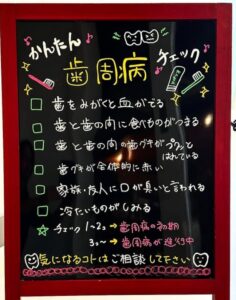 かんたん
歯周病
チェック
□ 歯をみがくと血がでる
□ 歯と歯の間に食べものがつまる
□ 歯と歯の間の歯グキがプクッと
はれている
□ 歯グキが全体的に赤い
□ 家族・友人に口が臭いと言われる
□ 冷たいものがしみる
☆ チェック 1~2コ → 歯周病の初期
3コ~ → 歯周病が進行中
気になるコトはご相談して下さい